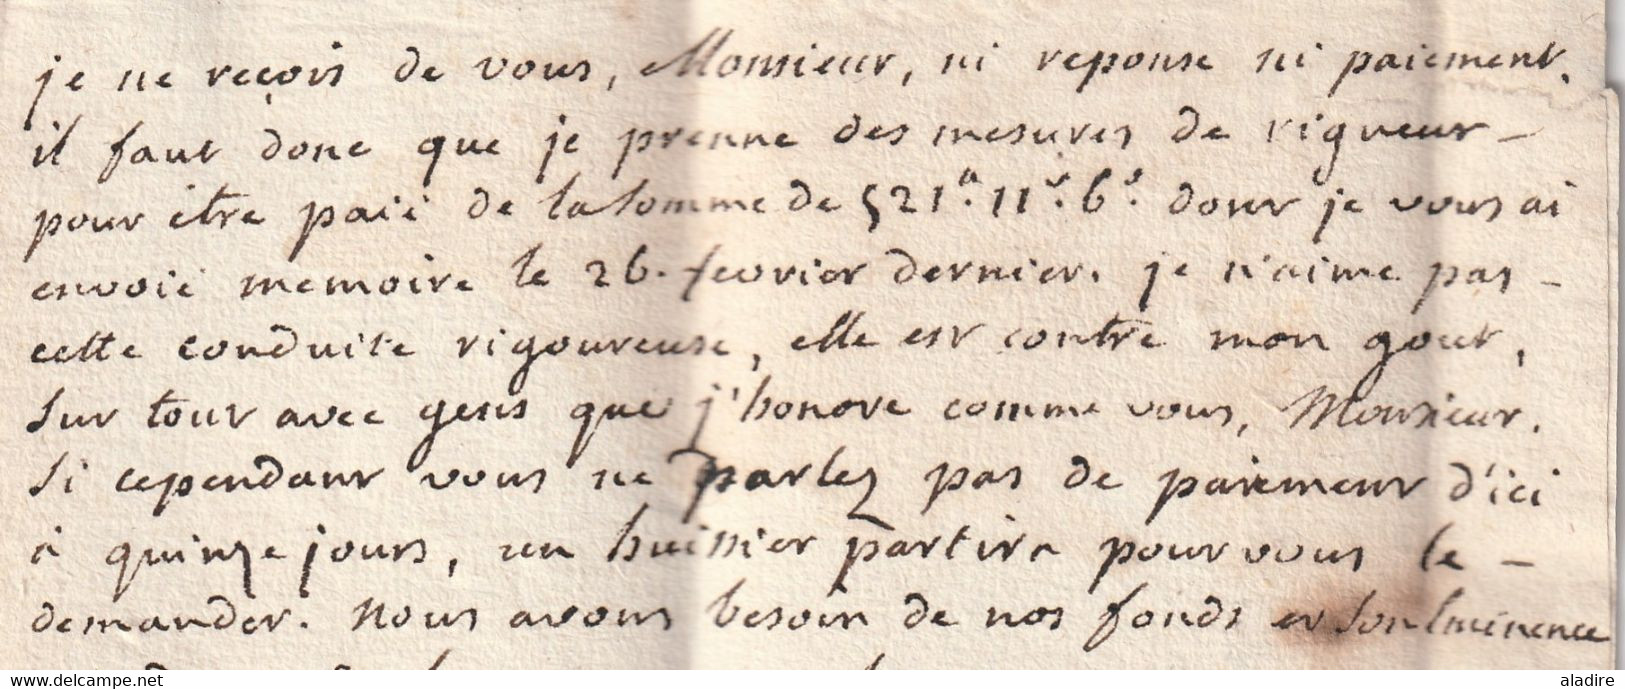 je ne reçois de vous, Monsieur, ni reponse ni paiement.
il faut donc que je prenne des mesures de rigueur -
pour être paié de la somme de 521ᵃ. 11ˢ. 6ᵈ. dont je vous ai
envoié memoire le 26. fevrier dernier. je n'aime pas -
cette conduite rigoureuse, elle est contre mon gout,
sur tout avec gens que j'honore comme vous, Monsieur.
si cependant vous ne parlez pas de paiement d'ici
à quinze jours, un huissier partira pour vous le -
demander. Nous avons besoin de nos fonds et son Eminence
delcampe.net
aladire